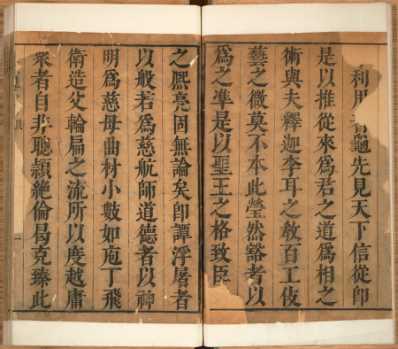 利用蓍龜先見天下信從即
是以推從來爲君之道爲相之
術與夫釋迦李耳之敎百工伎
藝之微莫不本此瑩然豁者以
爲之凖是以聖王之格致臣
之熙亮固無論矣即譚浮屠者
以般若爲慈航師道德者以神
明爲慈母曲材小數如庖丁飛
衛造父輪扁之流所以度越庸
衆者自非聰頴絶倫曷克臻此